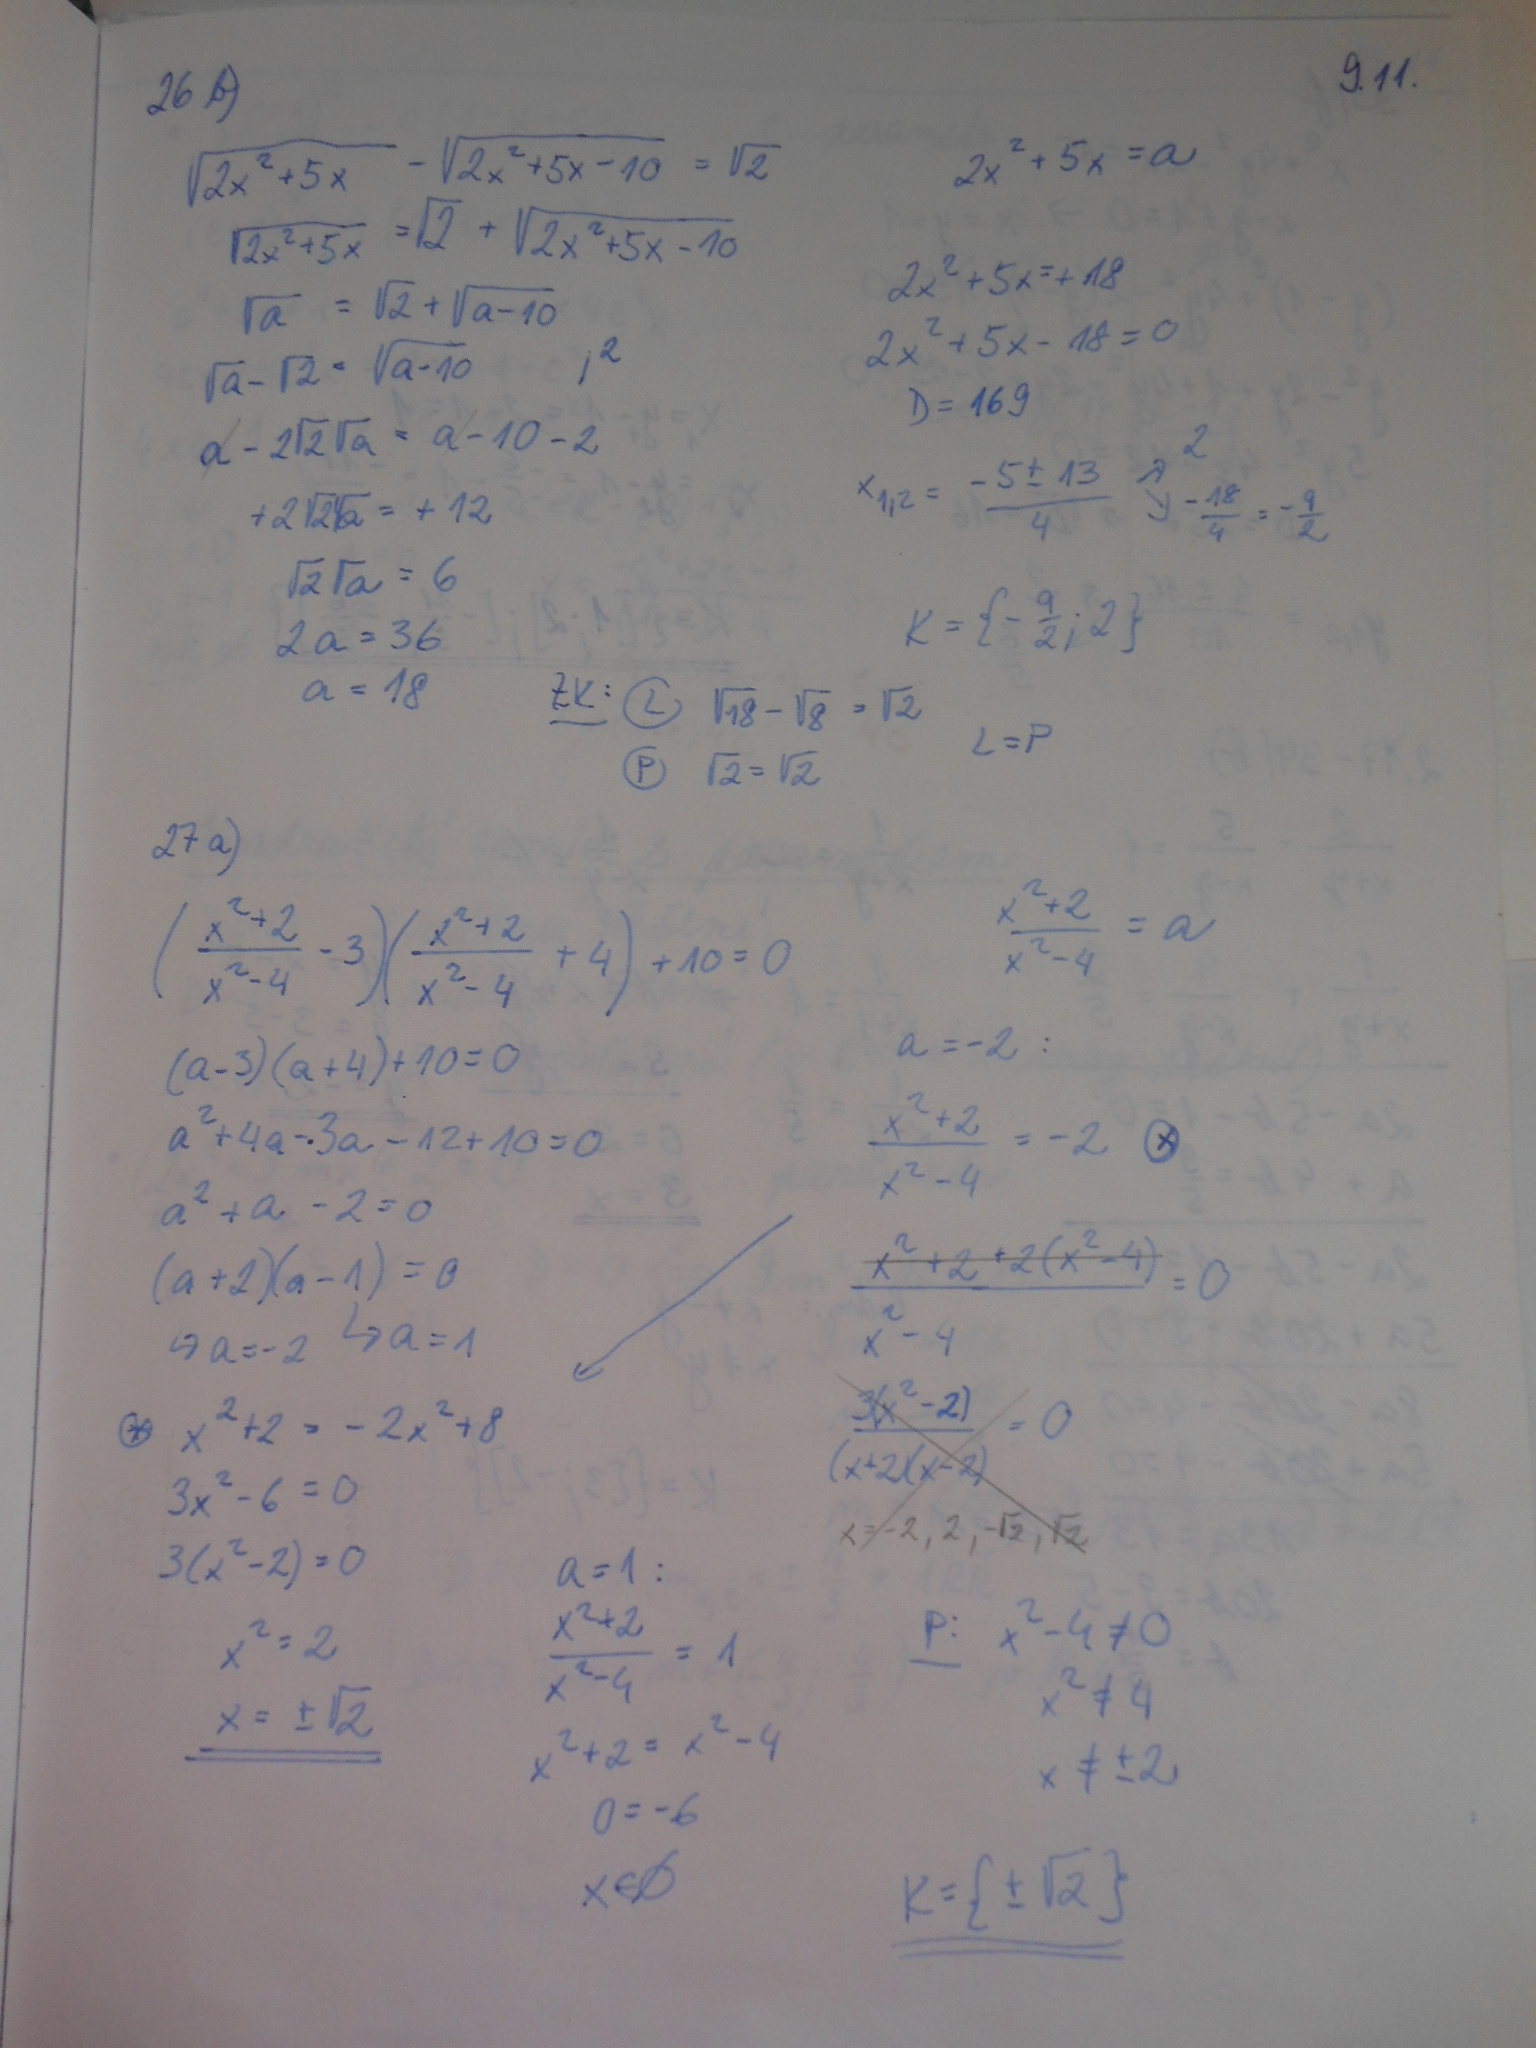 26 b)
9.11.
√(2x²+5x) - √(2x²+5x-10) = √2
√(2x²+5x) = √2 + √(2x²+5x-10)
√a = √2 + √(a-10)
√a - √2 = √(a-10) /²
a - 2√2√a = a - 10 - 2
+2√2√a = +12
√2√a = 6
2a = 36
a = 18
2x² + 5x = a
2x² + 5x = +18
2x² + 5x - 18 = 0
D = 169
x₁,₂ = (-5 ± 13)/4 ↗ 2 ↘ -18/4 = -9/2
K = {-9/2; 2}
ZK: Ⓛ √18 - √8 = √2
Ⓟ √2 = √2
L = P
27 a)
((x²+2)/(x²-4) - 3)((x²+2)/(x²-4) + 4) + 10 = 0
(a-3)(a+4) + 10 = 0
a² + 4a - 3a - 12 + 10 = 0
a² + a - 2 = 0
(a+2)(a-1) = 0
↪ a = -2 ↪ a = 1
(x²+2)/(x²-4) = a
a = -2 :
(x²+2)/(x²-4) = -2 ⊛
(x²+2+2(x²-4))/(x²-4) = 0
3(x²-2)/((x+2)(x-2)) = 0
x = -2, 2, -√2, √2
⊛ x²+2 = -2x²+8
3x² - 6 = 0
3(x²-2) = 0
x² = 2
x = ±√2
a = 1 :
(x²+2)/(x²-4) = 1
x²+2 = x²-4
0 = -6
x ∈ ∅
P: x²-4 ≠ 0
x² ≠ 4
x ≠ ±2
K = {±√2}